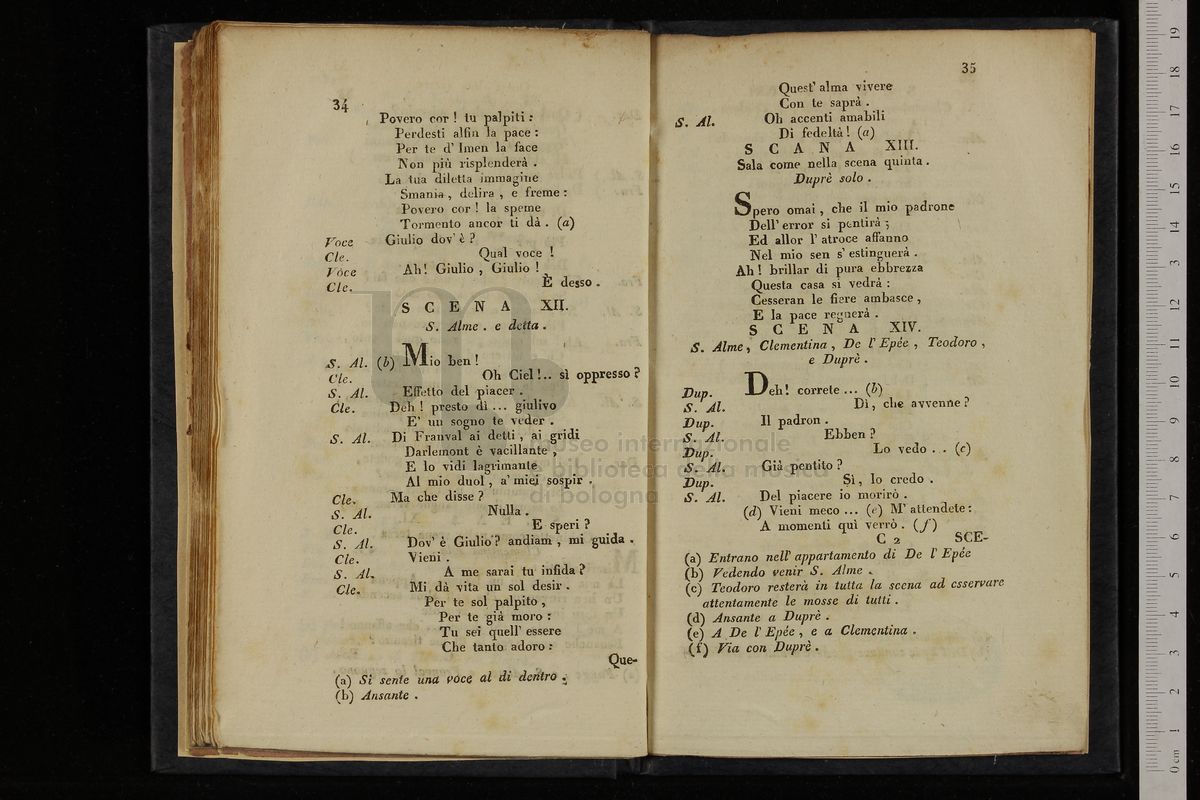 34
Povero cor ! tu palpiti :
Perdesti alfin la pace :
Per te d' Imen la face
Non più risplenderà .
La tua diletta immagine
Smania , delira , e freme :
Povero cor ! la speme
Tormento ancor ti dà . (a)
Voce Giulio dov' è ?
Cle. Qual voce !
Voce Ah! Giulio , Giulio !
Cle. È desso .
S C E N A XII.
S. Alme . e detta .
S. Al. (b) Mio ben !
Cle. Oh Ciel !.. sì oppresso ?
S. Al. Effetto del piacer .
Cle. Deh ! presto dì ... giulivo
E' un sogno te veder .
S. Al. Di Franval ai detti , ai gridi
Darlemont è vacillante ,
E lo vidi lagrimante
Al mio duol , a' miei sospir .
Cle. Ma che disse ?
S. Al. Nulla .
Cle. E speri ?
S. Al. Dov' è Giulio ? andiam , mi guida .
Cle. Vieni .
S. Al. A me sarai tu infida ?
Cle. Mi dà vita un sol desir .
Per te sol palpito ,
Per te già moro :
Tu sei quell' essere
Che tanto adoro :
Que-
(a) Si sente una voce al di dentro .
(b) Ansante .
35
Quest' alma vivere
Con te saprà .
S. Al. Oh accenti amabili
Di fedeltà ! (a)
S C A N A XIII.
Sala come nella scena quinta .
Duprè solo .
Spero omai , che il mio padrone
Dell' error si pentirà ;
Ed allor l' atroce affanno
Nel mio sen s' estinguerà .
Ah ! brillar di pura ebbrezza
Questa casa si vedrà :
Cesseran le fiere ambasce ,
E la pace regnerà .
S C E N A XIV.
S. Alme , Clementina , De l' Epée , Teodoro ,
e Duprè .
Dup. Deh! correte ... (b)
S. Al. Dì , che avvenne ?
Dup. Il padron .
S. Al. Ebben ?
Dup. Lo vedo . . (c)
S. Al. Già pentito ?
Dup. Sì , lo credo .
S. Al. Del piacere io morirò .
(d) Vieni meco ... (e) M' attendete :
A momenti quì verrò . (f)
C 2 SCE-
(a) Entrano nell' appartamento di De l' Epée
(b) Vedendo venir S. Alme .
(c) Teodoro resterà in tutta la scena ad esservare
attentamente le mosse di tutti .
(d) Ansante a Duprè .
(e) A De l' Epée , e a Clementina .
(f) Via con Duprè .
museo internazionale
e biblioteca della musica
di bologna
0 cm 1 2 3 4 5 6 7 8 9 10 11 12 13 14 15 16 17 18 19